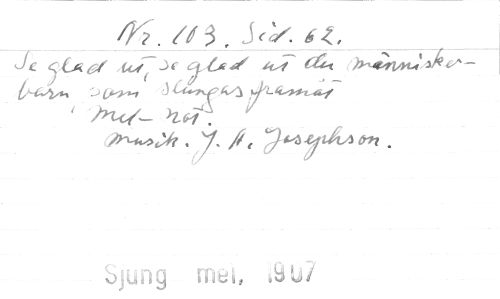 Nr. 103. Sid. 62.
Se glad ut, se glad ut du människo-
barn, som slungas framåt
Mel- not.
Musik. J. A. Josephson.
Sjung mel, 1907